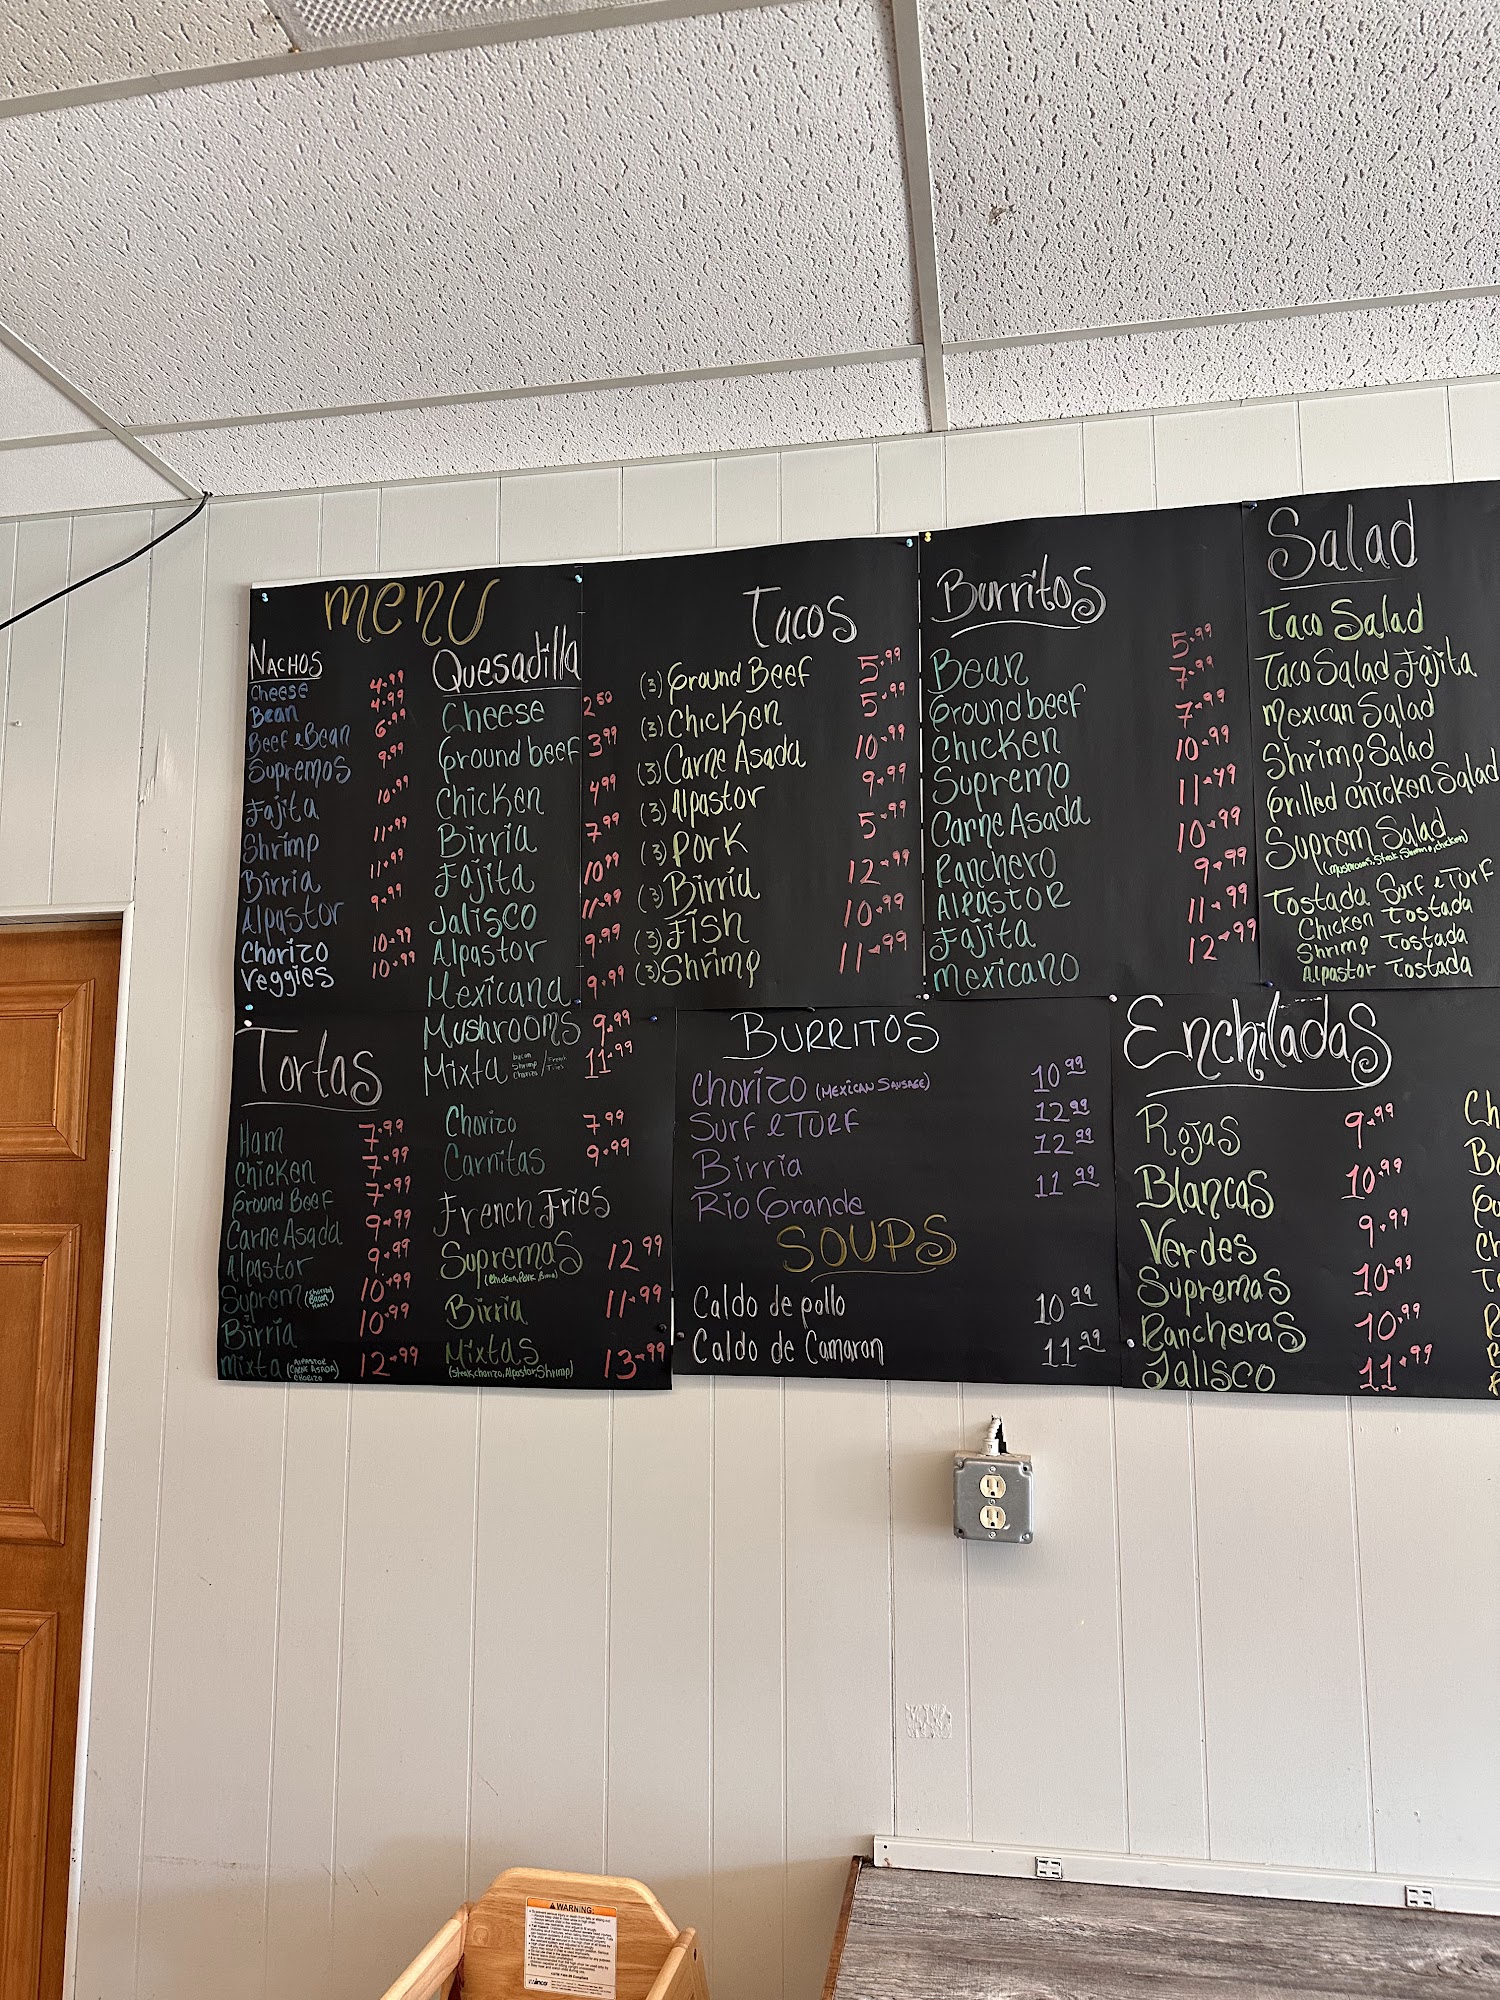 MENU
NACHOS
Cheese 4.99
Bean 4.99
Beef & Bean 6.99
Supremos 9.99
Fajita 10.99
Shrimp 11.99
Birria 11.99
Alpastor 9.99
Chorizo 10.99
Veggies 10.99
Quesadilla
Cheese 2.50
Ground beef 3.99
Chicken 4.99
Birria 7.99
Fajita 10.99
Jalisco 11.99
Alpastor 9.99
Mexicana 9.99
Mushrooms 9.99
Mixta bacon Shrimp Chorizo / French Fries 11.99
Chorizo 7.99
Carnitas 9.99
Tacos
(3) Ground Beef 5.99
(3) Chicken 5.99
(3) Carne Asada 10.99
(3) Alpastor 9.99
(3) Pork 5.99
(3) Birria 12.99
(3) Fish 10.99
(3) Shrimp 11.99
Burritos
Bean 5.99
Ground beef 7.99
Chicken 7.99
Supremo 10.99
Carne Asada 11.99
Ranchero 10.99
Alpastor 9.99
Fajita 11.99
Mexicano 12.99
Salad
Taco Salad
Taco Salad Fajita
Mexican Salad
Shrimp Salad
Grilled Chicken Salad
Suprem Salad
(mushroom, Steak, Shrimp, chicken)
Tostada Surf & Turf
Chicken Tostada
Shrimp Tostada
Alpastor Tostada
Tortas
Ham 7.99
Chicken 7.99
Ground Beef 7.99
Carne Asada 9.99
Alpastor 9.99
Suprem (Chorizo Bacon Ham) 10.99
Birria 10.99
Mixta (ALPASTOR CARNE ASADA) CHORIZO 12.99
French Fries
Supremas 12.99
(Chicken, Pork,
Birria 11.99
Mixtas 13.99
(Steak, chorizo, Alpastor, Shrimp)
BURRITOS
Chorizo (MEXICAN SAUSAGE) 10.99
Surf & Turf 12.99
Birria 12.99
Rio Grande 11.99
SOUPS
Caldo de pollo 10.99
Caldo de Camaron 11.99
Enchiladas
Rojas 9.99
Blancas 10.99
Verdes 9.99
Supremas 10.99
Rancheras 10.99
Jalisco 11.99
Ch
WARNING: